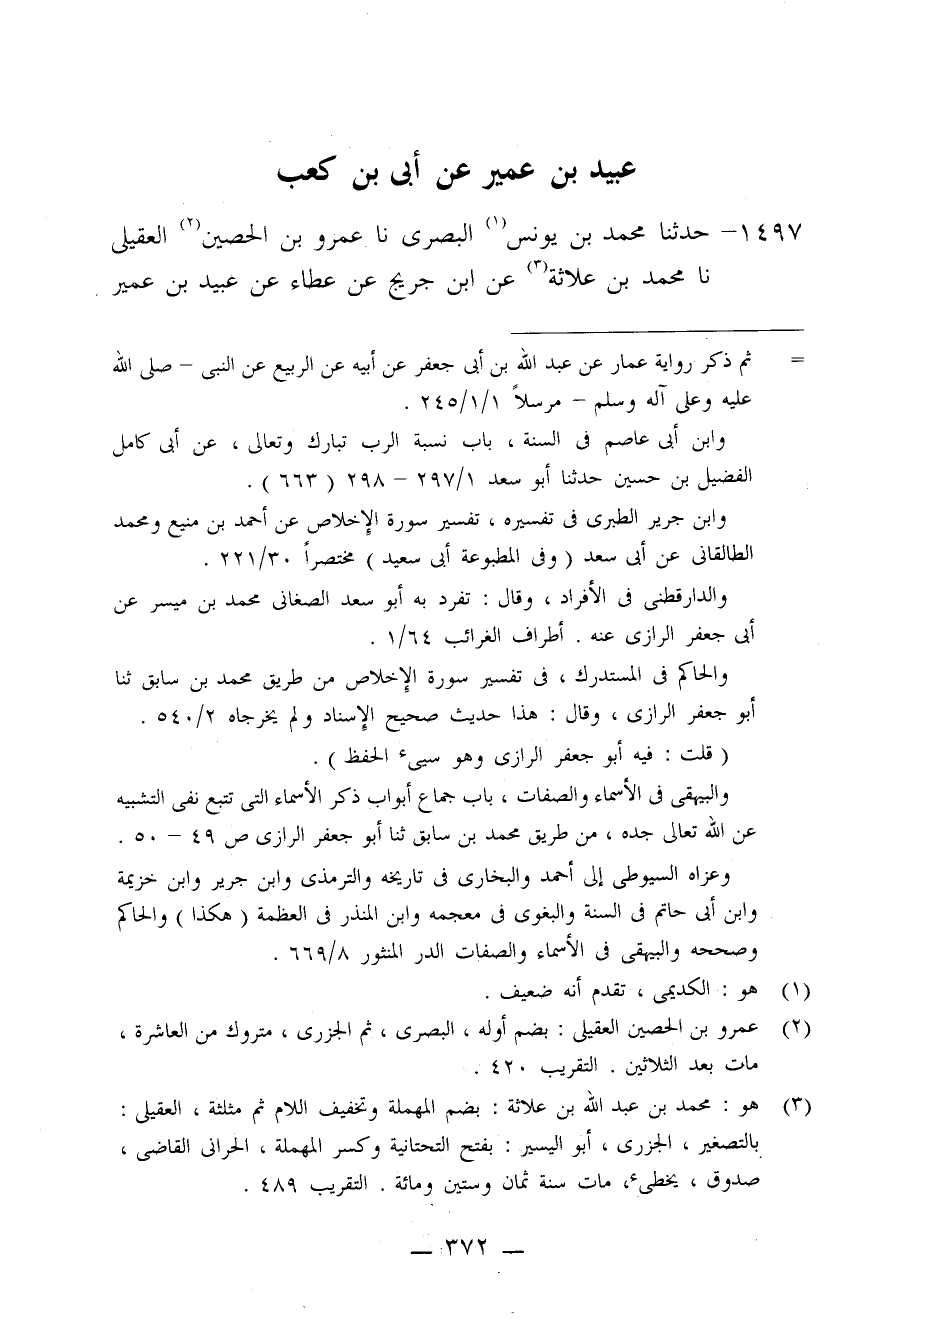 عبيد بن عمير عن أبى بن كعب
١٤٩٧- حدثنا محمد بن يونس(١) البصرى نا عمرو بن الحصين(٢) العقيلى
نا محمد بن علاثة(٣) عن ابن جريج عن عطاء عن عبيد بن عمير
= ثم ذكر رواية عمار عن عبد الله بن أبى جعفر عن أبيه عن الربيع عن النبى – صلى الله
عليه وعلى آله وسلم – مرسلاً ٢٤٥/١/١ .
وابن أبى عاصم فى السنة ، باب نسبة الرب تبارك وتعالى ، عن أبى كامل
الفضيل بن حسين حدثنا أبو سعد ٢٩٧/١ – ٢٩٨ ( ٦٦٣ ) .
وابن جرير الطبرى فى تفسيره ، تفسير سورة الإخلاص عن أحمد بن منيع ومحمد
الطالقانى عن أبى سعد ( وفى المطبوعة أبى سعيد ) مختصراً ٢٢١/٣٠ .
والدارقطنى فى الأفراد ، وقال : تفرد به أبو سعد الصغانى محمد بن ميسر عن
أبى جعفر الرازى عنه . أطراف الغرائب ١/٦٤ .
والحاكم فى المستدرك ، فى تفسير سورة الإخلاص من طريق محمد بن سابق ثنا
أبو جعفر الرازى ، وقال : هذا حديث صحيح الإسناد ولم يخرجاه ٥٤٠/٢ .
( قلت : فيه أبو جعفر الرازى وهو سيىء الحفظ ) .
والبيهقى فى الأسماء والصفات ، باب جماع أبواب ذكر الأسماء التى تتبع نفى التشبيه
عن الله تعالى جده ، من طريق محمد بن سابق ثنا أبو جعفر الرازى ص ٤٩ – ٥٠ .
وعزاه السيوطى إلى أحمد والبخارى فى تاريخه والترمذى وابن جرير وابن خزيمة
وابن أبى حاتم فى السنة والبغوى فى معجمه وابن المنذر فى العظمة ( هكذا ) والحاكم
وصححه والبيهقى فى الأسماء والصفات الدر المنثور ٦٦٩/٨ .
(١) هو : الكديمى ، تقدم أنه ضعيف .
(٢) عمرو بن الحصين العقيلى : بضم أوله ، البصرى ، ثم الجزرى ، متروك من العاشرة ،
مات بعد الثلاثين . التقريب ٤٢٠ .
(٣) هو : محمد بن عبد الله بن علاثة : بضم المهملة وتخفيف اللام ثم مثلثة ، العقيلى :
بالتصغير ، الجزرى ، أبو اليسير : بفتح التحتانية وكسر المهملة ، الحرانى القاضى ،
صدوق ، يخطىء، مات سنة ثمان وستين ومائة . التقريب ٤٨٩ .
— ٣٧٢ —